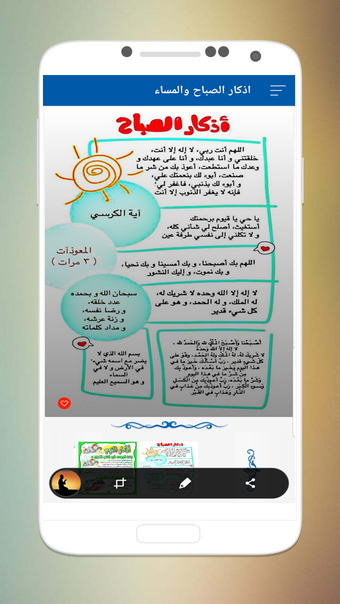 اذكار الصباح والمساء
أذكار الصباح
اللهم أنت ربي، لا إله إلا أنت،
خلقتني و أنا عبدك، و أنا على عهدك و
وعدك ما استطعت، أعوذ بك من شر ما
صنعت، أبوء لك بنعمتك علي،
و أبوء لك بذنبي، فاغفر لي
فإنه لا يغفر الذنوب إلا أنت
آية الكرسي
يا حي يا قيوم برحمتك
أستغيث، أصلح لي شأني كله،
و لا تكلني إلى نفسي طرفة عين
المعوذات
( ٣ مرات )
اللهم بك أصبحنا ، و بك أمسينا و بك نحيا،
و بك نموت، و إليك النشور
لا إله إلا الله وحده لا شريك له،
له الملك، و له الحمد، و هو على
كل شيء قدير
سبحان الله و بحمده
عدد خلقه،
و رضا نفسه،
و زنة عرشه،
و مداد كلماته
أصبحنا وأصبح الملك لله والحمد لله ،
لا إله إلا الله
وحده لا شريك له، له الملك وله الحمد، وهو على
كل شيء قدير ، رب أسألك خير ما في
هذا اليوم وخير ما بعده ، وأعوذ بك
من شر ما في هذا اليوم
وشر ما بعده ، رب أعوذ بك من الكسل
وسوء الكبر ، رب أعوذ بك من عذاب في
النار وعذاب في القبر
بسم الله الذي لا
يضر مع اسمه شيء
في الأرض و لا في
السماء
و هو السميع العليم